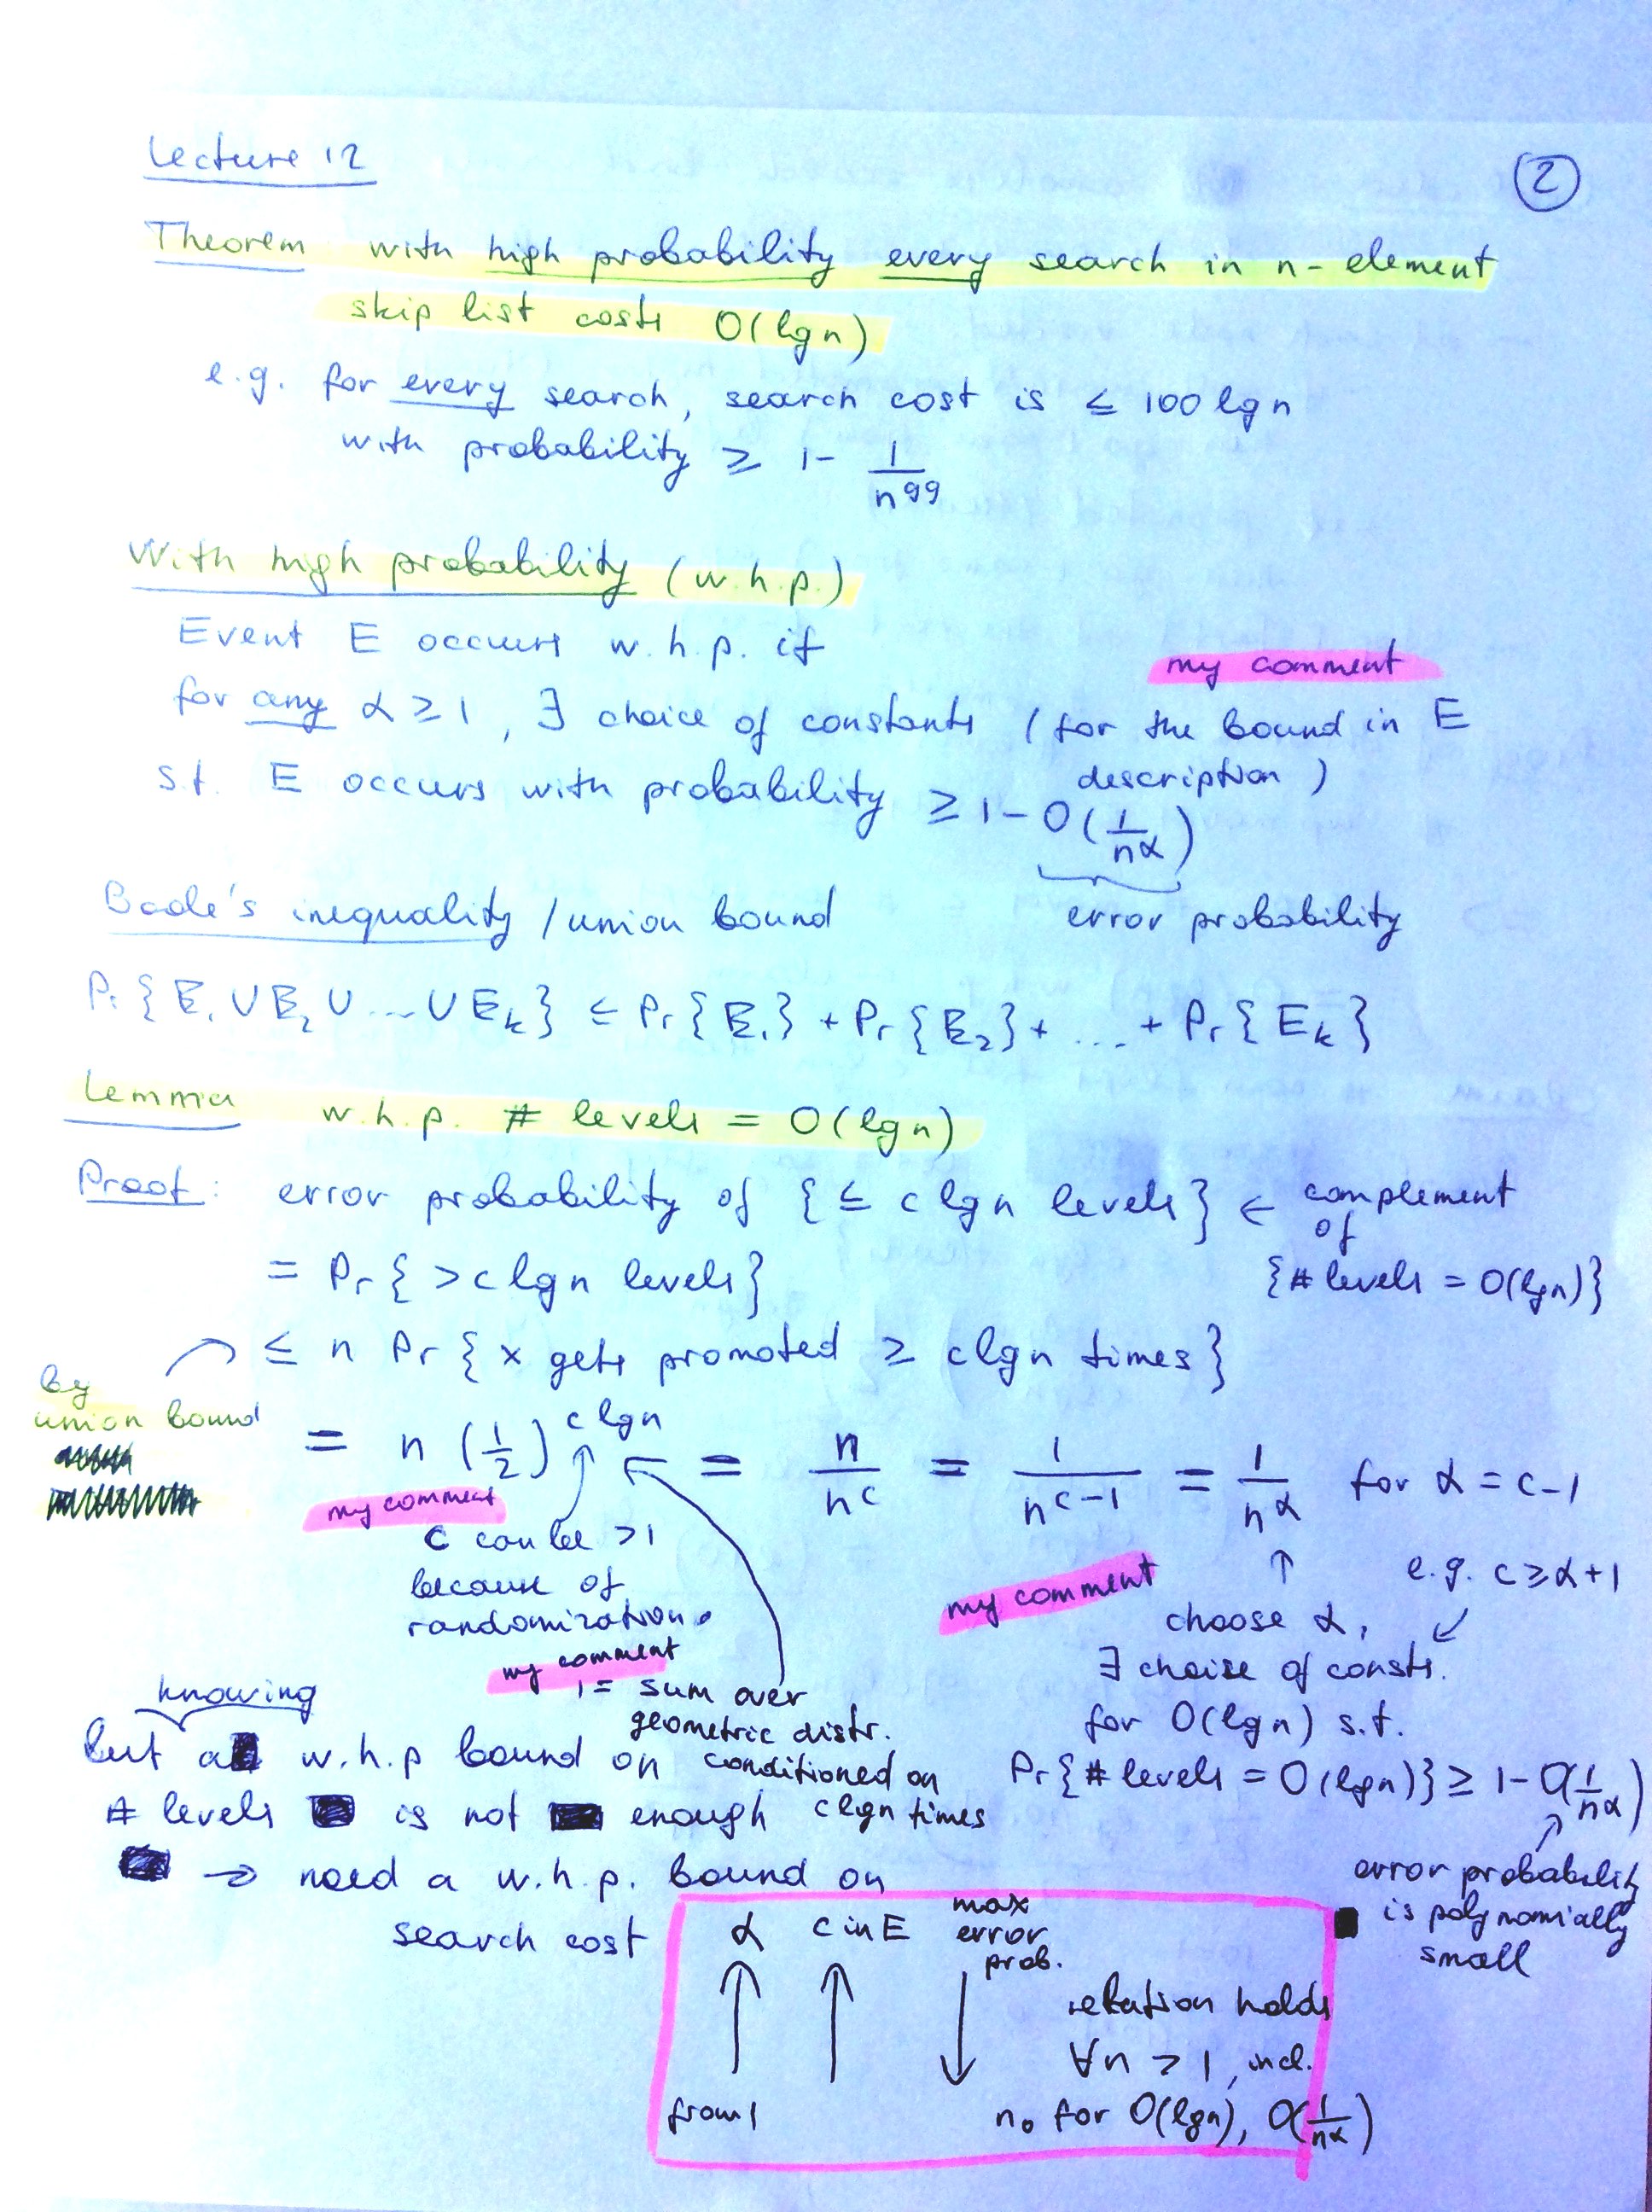 Lecture 12
②
Theorem with high probability every search in n-element
skip list costs O(lg n)
e.g. for every search, search cost is ≤ 100 lg n
with probability ≥ 1 - 1/n^99
With high probability (w.h.p.)
Event E occurs w.h.p. if
my comment
for any α ≥ 1, ∃ choice of constants (for the bound in E
description)
s.t. E occurs with probability ≥ 1 - O(1/n^α)
error probability
Boole's inequality / union bound
Pr{E₁ ∪ E₂ ∪ ... ∪ E_k} ≤ Pr{E₁} + Pr{E₂} + ... + Pr{E_k}
Lemma w.h.p. # levels = O(lg n)
Proof: error probability of {≤ c lg n levels} ← complement
of
{# levels = O(lg n)}
= Pr{> c lg n levels}
≤ n Pr{x gets promoted ≥ c lg n times}
by
union bound
= n (1/2)^(c lg n) = n/n^c = 1/n^(c-1) = 1/n^α for α = c-1
my comment
c can be >1
because of
randomization.
my comment
1 = sum over
geometric distr.
conditioned on
c lg n times
e.g. c ≥ α+1
my comment
choose α,
∃ choise of consts.
for O(lg n) s.t.
Pr{# levels = O(lg n)} ≥ 1 - O(1/n^α)
error probability
is polynomially
small
knowing
but a w.h.p bound on
# levels is not enough
→ need a w.h.p. bound on
search cost
α c in E max
error
prob.
↑ ↑ ↓
from 1
relation holds
∀n > 1, incl.
n₀ for O(lg n), O(1/n^α)